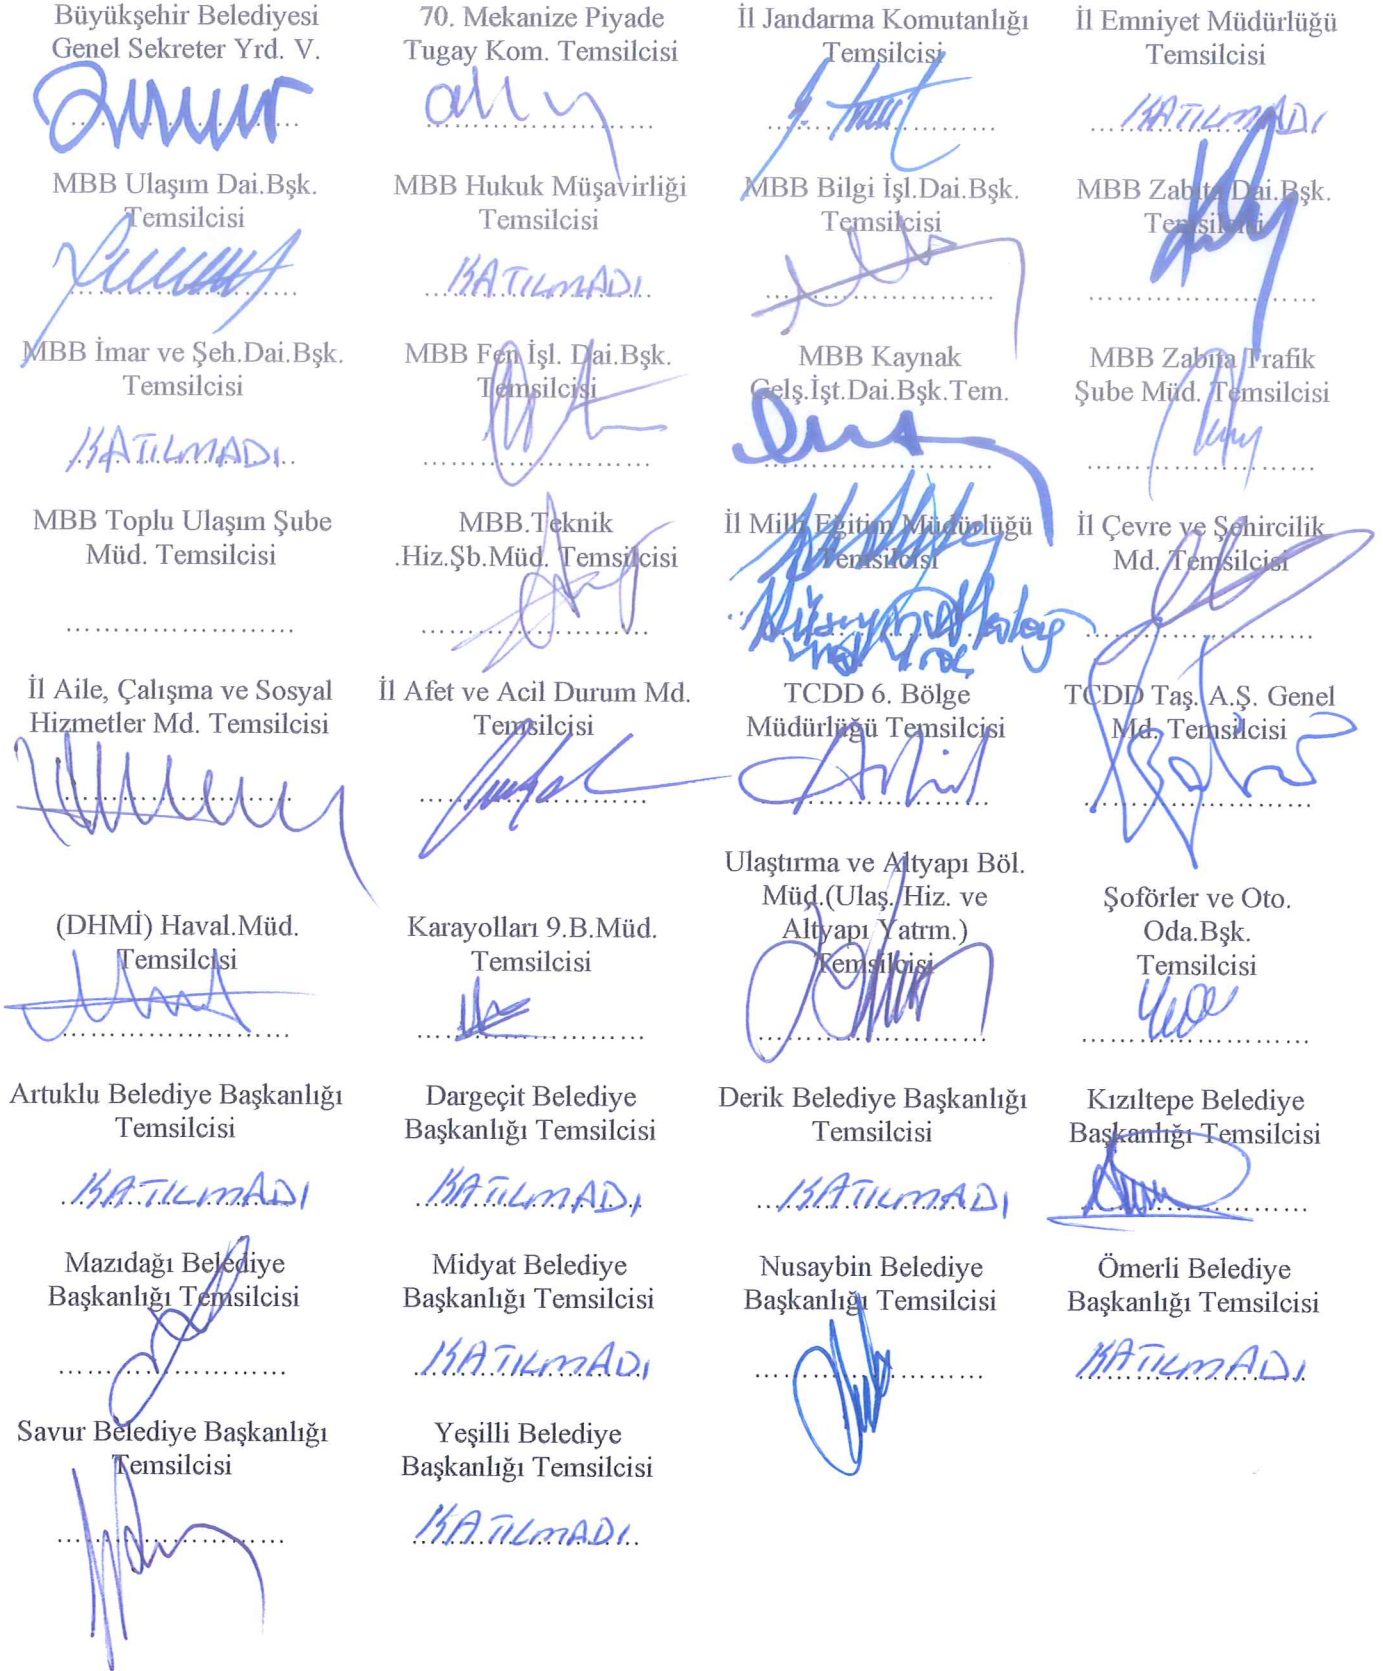 Büyükşehir Belediyesi
Genel Sekreter Yrd. V.
70. Mekanize Piyade
Tugay Kom. Temsilcisi
İl Jandarma Komutanlığı
Temsilcisi
İl Emniyet Müdürlüğü
Temsilcisi
KATILMADI
MBB Ulaşım Dai.Bşk.
Temsilcisi
MBB Hukuk Müşavirliği
Temsilcisi
KATILMADI
MBB Bilgi İşl.Dai.Bşk.
Temsilcisi
MBB Zabıta Dai.Bşk.
Temsilcisi
MBB İmar ve Şeh.Dai.Bşk.
Temsilcisi
KATILMADI
MBB Fen İşl. Dai.Bşk.
Temsilcisi
MBB Kaynak
Gelş.İşt.Dai.Bşk.Tem.
MBB Zabıta Trafik
Şube Müd. Temsilcisi
MBB Toplu Ulaşım Şube
Müd. Temsilcisi
MBB.Teknik
.Hiz.Şb.Müd. Temsilcisi
İl Milli Eğitim Müdürlüğü
Temsilcisi
İl Çevre ve Şehircilik
Md. Temsilcisi
İl Aile, Çalışma ve Sosyal
Hizmetler Md. Temsilcisi
İl Afet ve Acil Durum Md.
Temsilcisi
TCDD 6. Bölge
Müdürlüğü Temsilcisi
TCDD Taş. A.Ş. Genel
Md. Temsilcisi
(DHMİ) Haval.Müd.
Temsilcisi
Karayolları 9.B.Müd.
Temsilcisi
Ulaştırma ve Altyapı Böl.
Müd.(Ulaş. Hiz. ve
Altyapı Yatrm.)
Temsilcisi
Şoförler ve Oto.
Oda.Bşk.
Temsilcisi
Artuklu Belediye Başkanlığı
Temsilcisi
KATILMADI
Dargeçit Belediye
Başkanlığı Temsilcisi
KATILMADI
Derik Belediye Başkanlığı
Temsilcisi
KATILMADI
Kızıltepe Belediye
Başkanlığı Temsilcisi
Mazıdağı Belediye
Başkanlığı Temsilcisi
Midyat Belediye
Başkanlığı Temsilcisi
KATILMADI
Nusaybin Belediye
Başkanlığı Temsilcisi
Ömerli Belediye
Başkanlığı Temsilcisi
KATILMADI
Savur Belediye Başkanlığı
Temsilcisi
Yeşilli Belediye
Başkanlığı Temsilcisi
KATILMADI